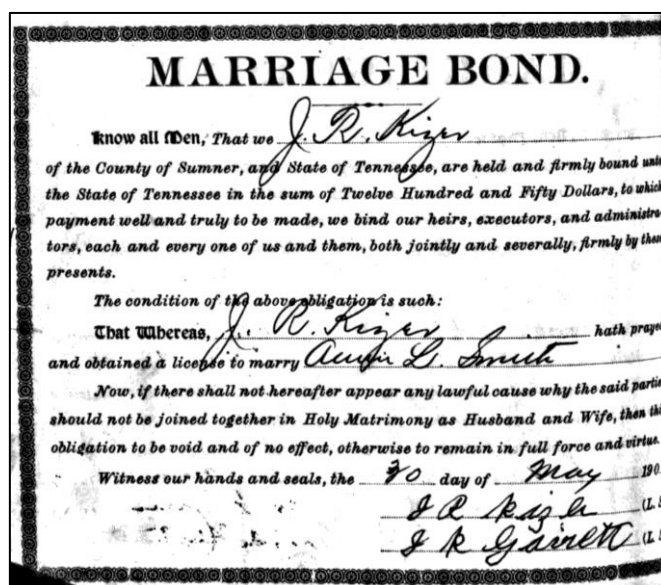 MARRIAGE BOND.
Know all Men, That we J. R. Kizer
of the County of Sumner, and State of Tennessee, are held and firmly bound unto
the State of Tennessee in the sum of Twelve Hundred and Fifty Dollars, to which
payment well and truly to be made, we bind our heirs, executors, and administra-
tors, each and every one of us and them, both jointly and severally, firmly by these
presents.
The condition of the above obligation is such:
That Whereas, J. R. Kizer hath prayed
and obtained a license to marry L. Smith
Now, if there shall not hereafter appear any lawful cause why the said partie
should not be joined together in Holy Matrimony as Husband and Wife, then thi
obligation to be void and of no effect, otherwise to remain in full force and virtue.
Witness our hands and seals, the 30 day of May 190
J R Kizer (L. S
J R Garrett (L. S